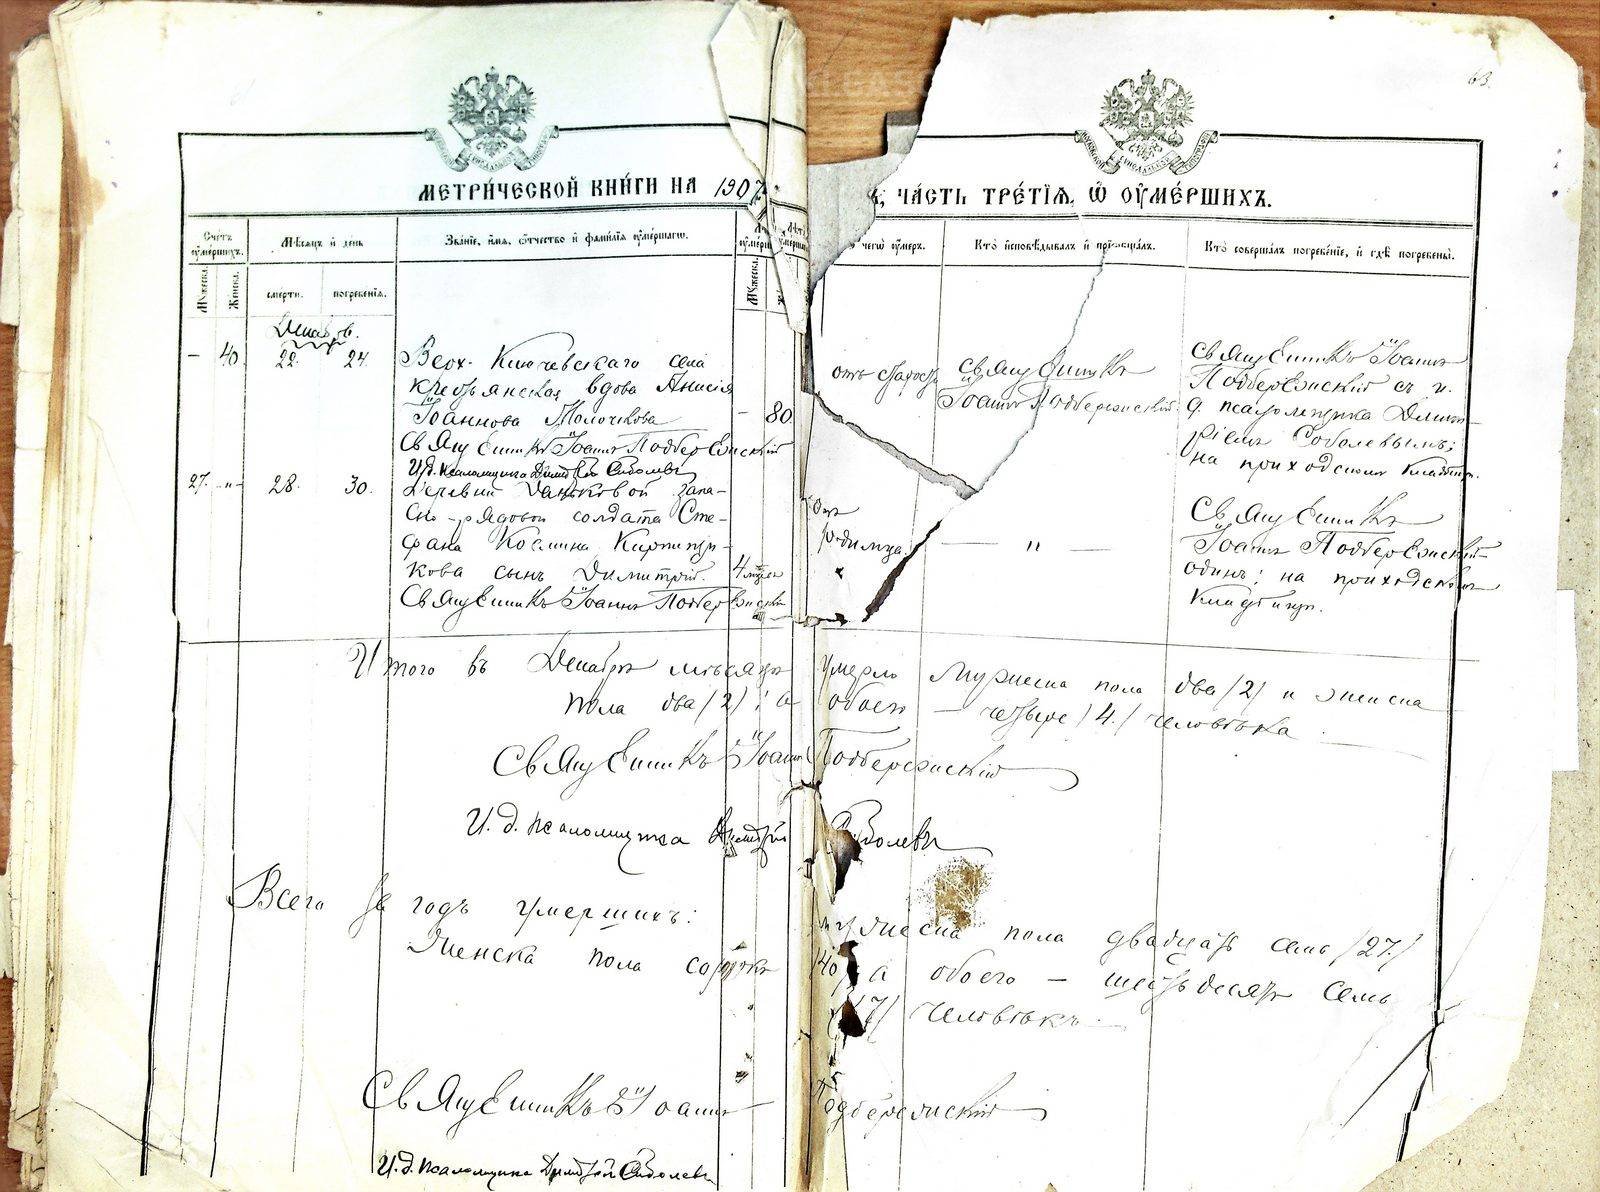 63.
МЕТРИ́ЧЕСКОЙ КНИ́ГИ НА 1907
ЧА́СТЬ ТРЕ́ТІѦ, Ѿ ОУ҆МЕ́РШИХЪ.
Счетъ оумершихъ.
Мѣсяцъ и день
Званіе, имя, отчество и фамилія оумершагω.
чегѡ оумеръ.
Кто исповѣдывалъ и пріобщалъ.
Кто совершалъ погребеніе, и гдѣ погребены.
Мужеска.
Женска.
смерти.
погребенія.
Мужеска.
Декабрь.
– 40. 22. 24. Верх-Ключевскаго села
крестьянская вдова Анисія
Іоаннова Молочкова – 80
Священникъ Іоаннъ Подбережскій
И. д. псаломщика Димитрій Соболевъ
отъ старости
Священникъ
Іоаннъ Подбережскій
Священникъ Іоаннъ
Подбережскій съ и.
д. псаломщика Димит-
ріемъ Соболевымъ;
на приходскомъ кладбищѣ.
27. -"- 28. 30. Деревни Даньковой запа-
сно-рядового солдата Сте-
фана Космина Кирпищи-
кова сынъ Димитрій. 4 мѣсяц
Священникъ Іоаннъ Подбережскій
Отъ
родимца
— " —
Священникъ
Іоаннъ Подбережскій
одинъ; на приходскомъ
кладбищѣ.
Итого въ Декабрѣ мѣсяцѣ умерло мужеска пола два /2/ и женска
пола два /2/; а обоего — четыре /4/ человѣка
Священникъ Іоаннъ Подбережскій
И. д. псаломщика Димитрій Соболевъ
Всего за годъ умершихъ: мужеска пола двадцать семь /27/
Женска пола сорокъ /40/ а обоего – шестьдесятъ семь
/67/ человѣкъ.
Священникъ Іоаннъ Подбережскій
И. д. псаломщика Димитрій Соболевъ